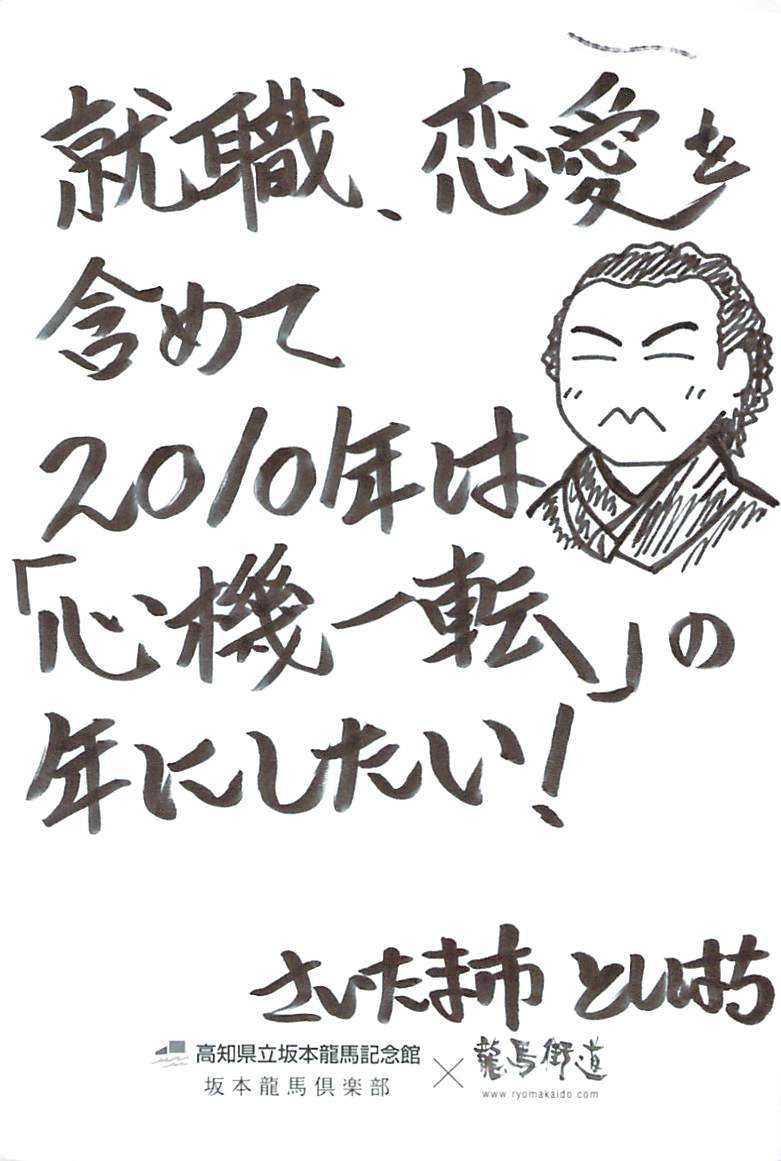 就職、恋愛を
含めて
2010年は
「心機一転」の
年にしたい!
さいたま市 としはち
高知県立坂本龍馬記念館
坂本龍馬倶楽部
×
龍馬街道
www.ryomakaido.com